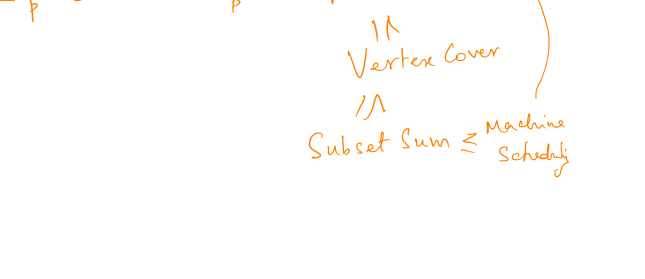 p p
Vertex Cover
Subset Sum ≤ Machine
Scheduling